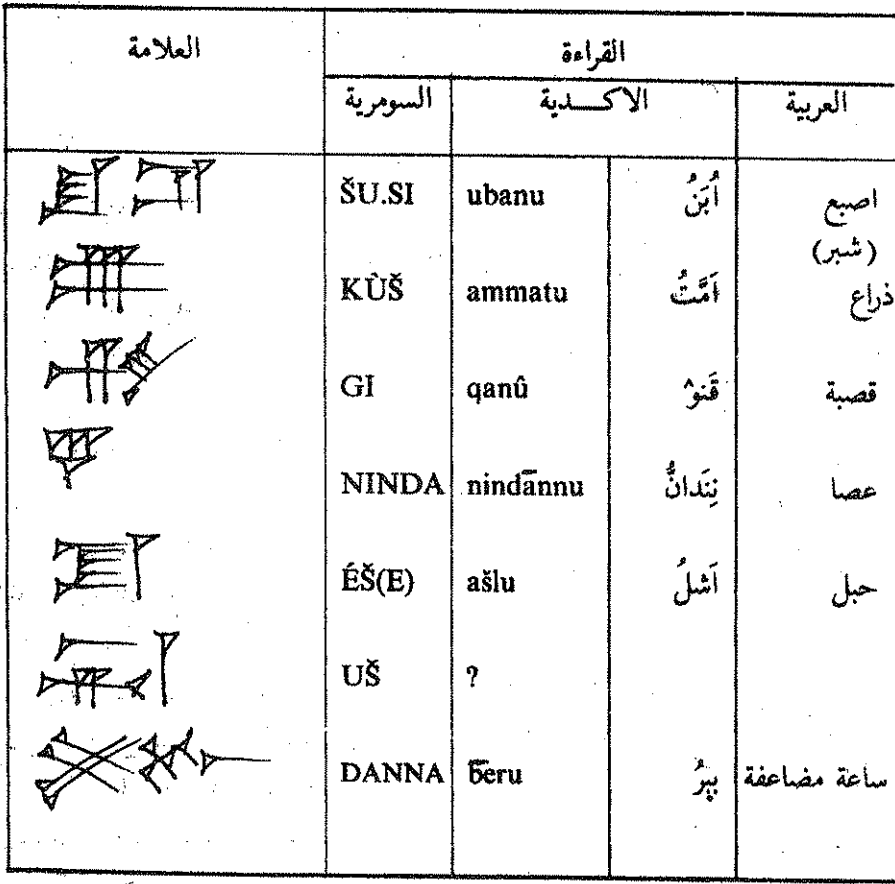 العلامة القراءة
السومرية الاكـــدية العربية
ŠU.SI ubanu اُبَنُ اصبع
(شبر)
KÙŠ ammatu اَمَّتُ ذراع
GI qanû قَنو^ قصبة
NINDA nindānnu نِندَانُّ عصا
ÉŠ(E) ašlu اَشلُ حبل
UŠ ?
DANNA b̄eru بيرُ ساعة مضاعفة